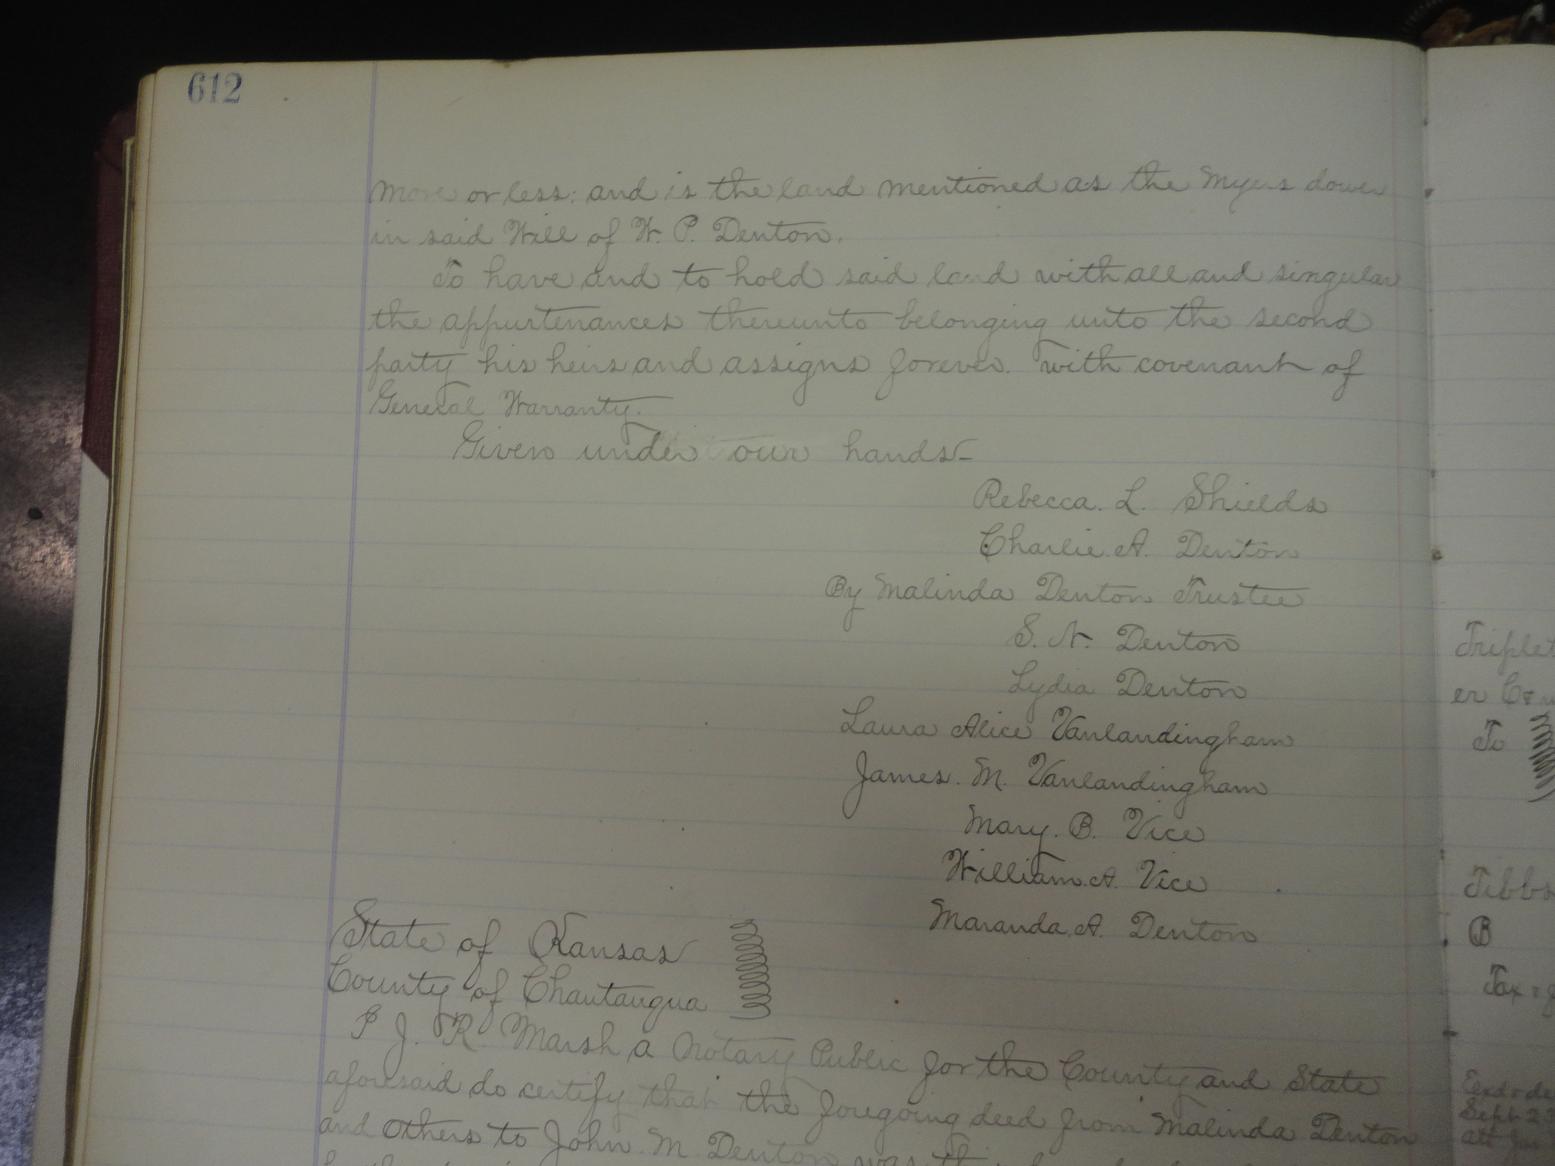 612
more or less: and is the land mentioned as the Myers dower
in said Will of W. P. Denton.
To have and to hold said land with all and singular
the appurtenances thereunto belonging unto the second
party his heirs and assigns forever. With covenant of
General Warranty.
Given under our hands-
Rebecca. L. Shields
Charlie. A. Denton
By Malinda Denton Trustee
S. N. Denton
Lydia Denton
Laura Alice Vanlandingham
James. M. Vanlandingham
Mary. B. Vice
William. A. Vice
Maranda. A. Denton
State of Kansas
County of Chautauqua
I J. R. Marsh a Notary Public for the County and State
aforesaid do certify that the foregoing deed from Malinda Denton
and others to John. M. Denton was this
Triplet
er
To
Tibbs
B
Sept 23